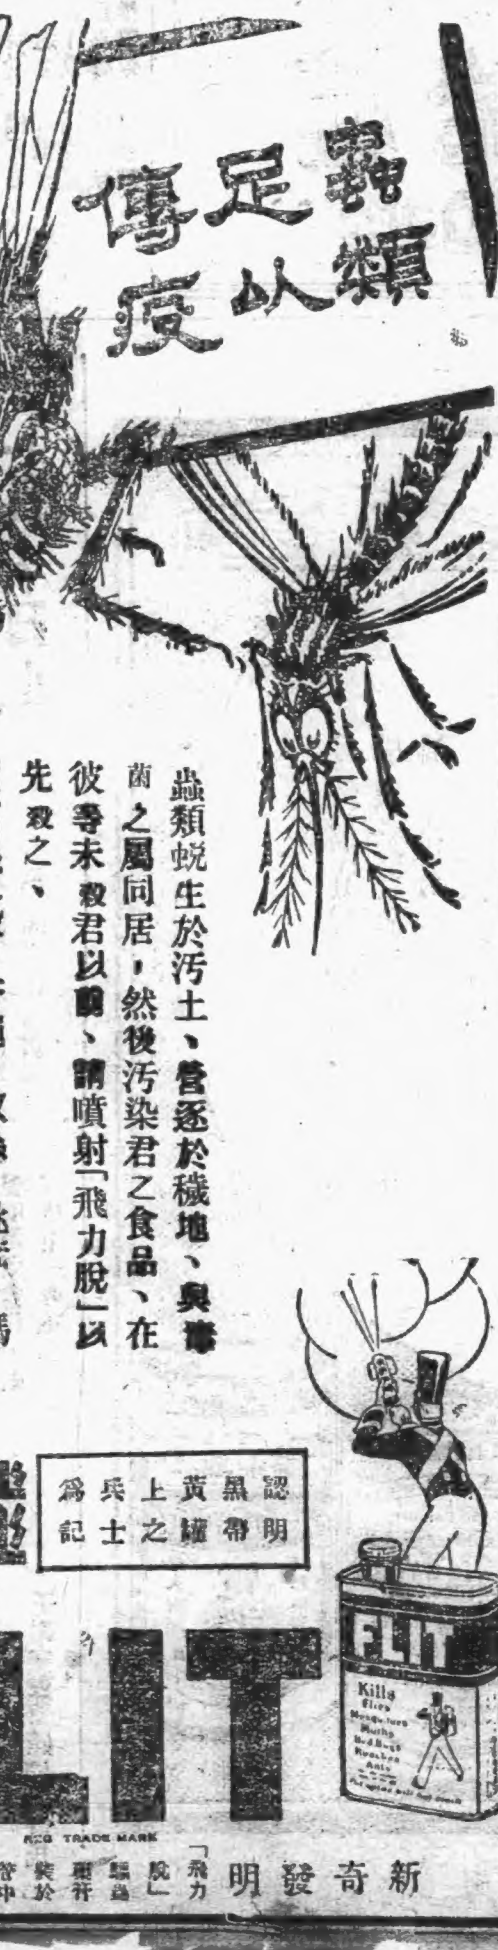 蟲類
足以
傳疫
蟲類蛻生於汚土、營逐於穢地、與毒
菌之屬同居，然後汚染君之食品、在
彼等未殺君以前、請噴射「飛力脫」以
先殺之、
認明
黑帶
黃罐
上之
兵士
爲記
FLIT
Kills
Flies
Mosquitoes
Moths
Bed Bugs
Roaches
Ants
LIT
REG TRADE MARK
新奇發明
「飛力
脫」